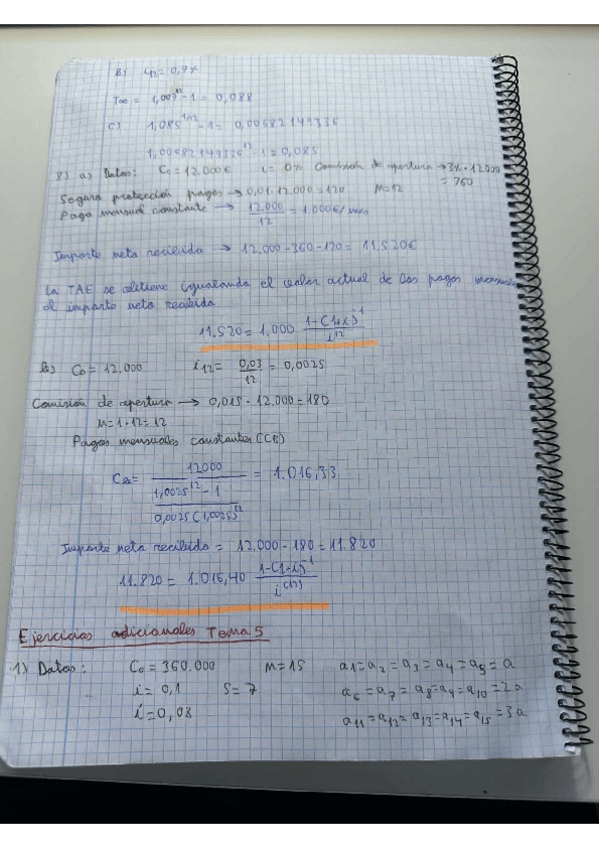 b) i12 = 0,7%
TAE = 1,007^12 - 1 = 0,088
c) 1,085^1/12 - 1 = 0,00682149336
1,00682149336^12 - 1 = 0,085
8) a) Datos: Co = 12.000€ i = 0% Comisión de apertura → 3% · 12.000 = 360
Seguro protección pagos → 0,01 · 12.000 = 120 M = 12
Pago mensual constante → 12.000/12 = 1.000€/mes
Importe neto recibido → 12.000 - 360 - 120 = 11.520€
La TAE se obtiene igualando el valor actual de los pagos mensuales
al importe neto recibido
11.520 = 1.000 (1-(1+i)^-1)/i^12
b) Co = 12.000 i12 = 0,03/12 = 0,0025
Comisión de apertura → 0,015 · 12.000 = 180
M = 1 · 12 = 12
Pagos mensuales constantes
= 12000 / ((1,0025^12 - 1)/(0,0025(1,0025)^12)) = 1.016,33
Importe neto recibido = 12.000 - 180 = 11.820
11.820 = 1.016,40 (1-(1+i)^-1)/i^(12)
Ejercicios adicionales Tema 5
1) Datos: Co = 360.000 M = 15 a1 = a2 = a3 = a4 = a5 = a
i = 0,1 S = 7 a6 = a7 = a8 = a9 = a10 = 2a
i = 0,08 a11 = a12 = a13 = a14 = a15 = 3a